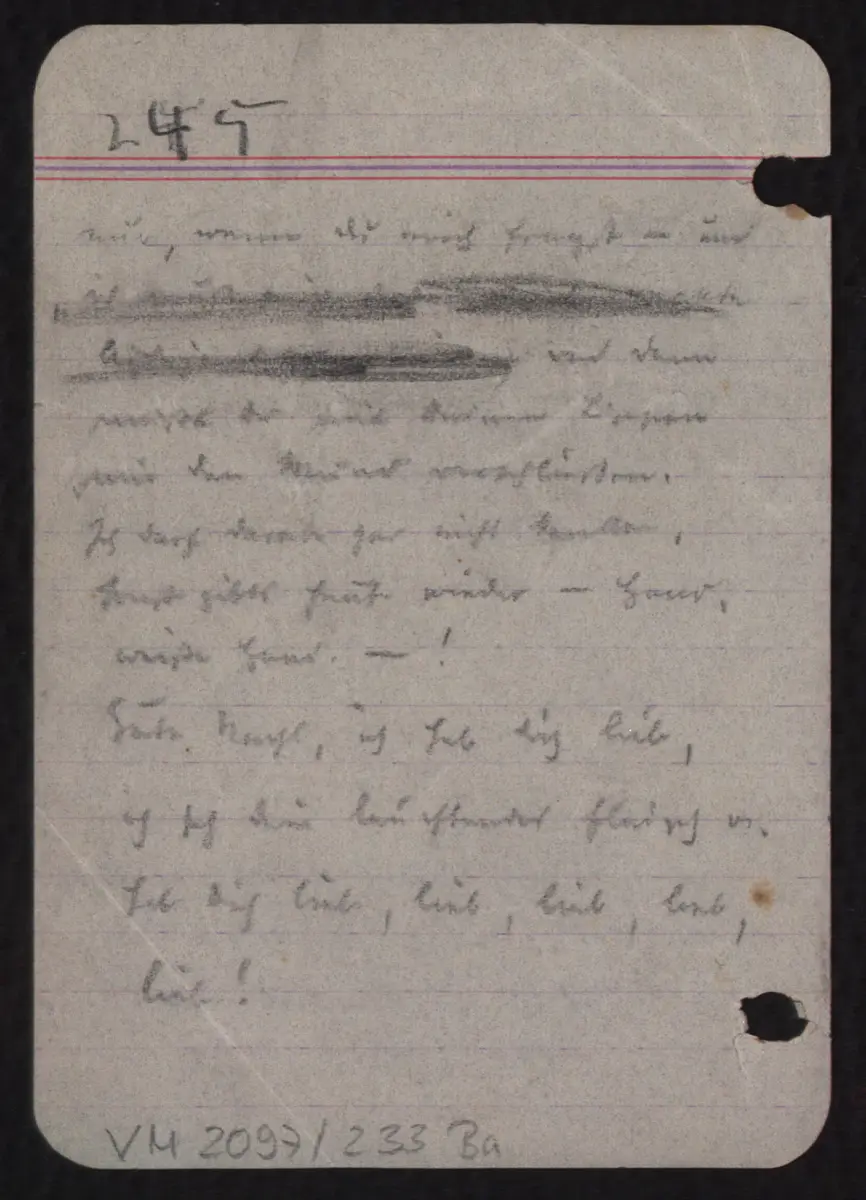 245
nur, wenn du mich fragst – und
ich muß
und dann
mußt du mit deinen Lippen
mir den Mund verschließen.
Ich darf daran gar nicht denken,
sonst gibts heute wieder – Hand,
weiße Hand. – !
Gute Nacht, ich hab dich lieb,
ich seh dein leuchtendes Fleisch u.
hab dich lieb, lieb, lieb, lieb,
lieb!
VM 2097/233 Ba